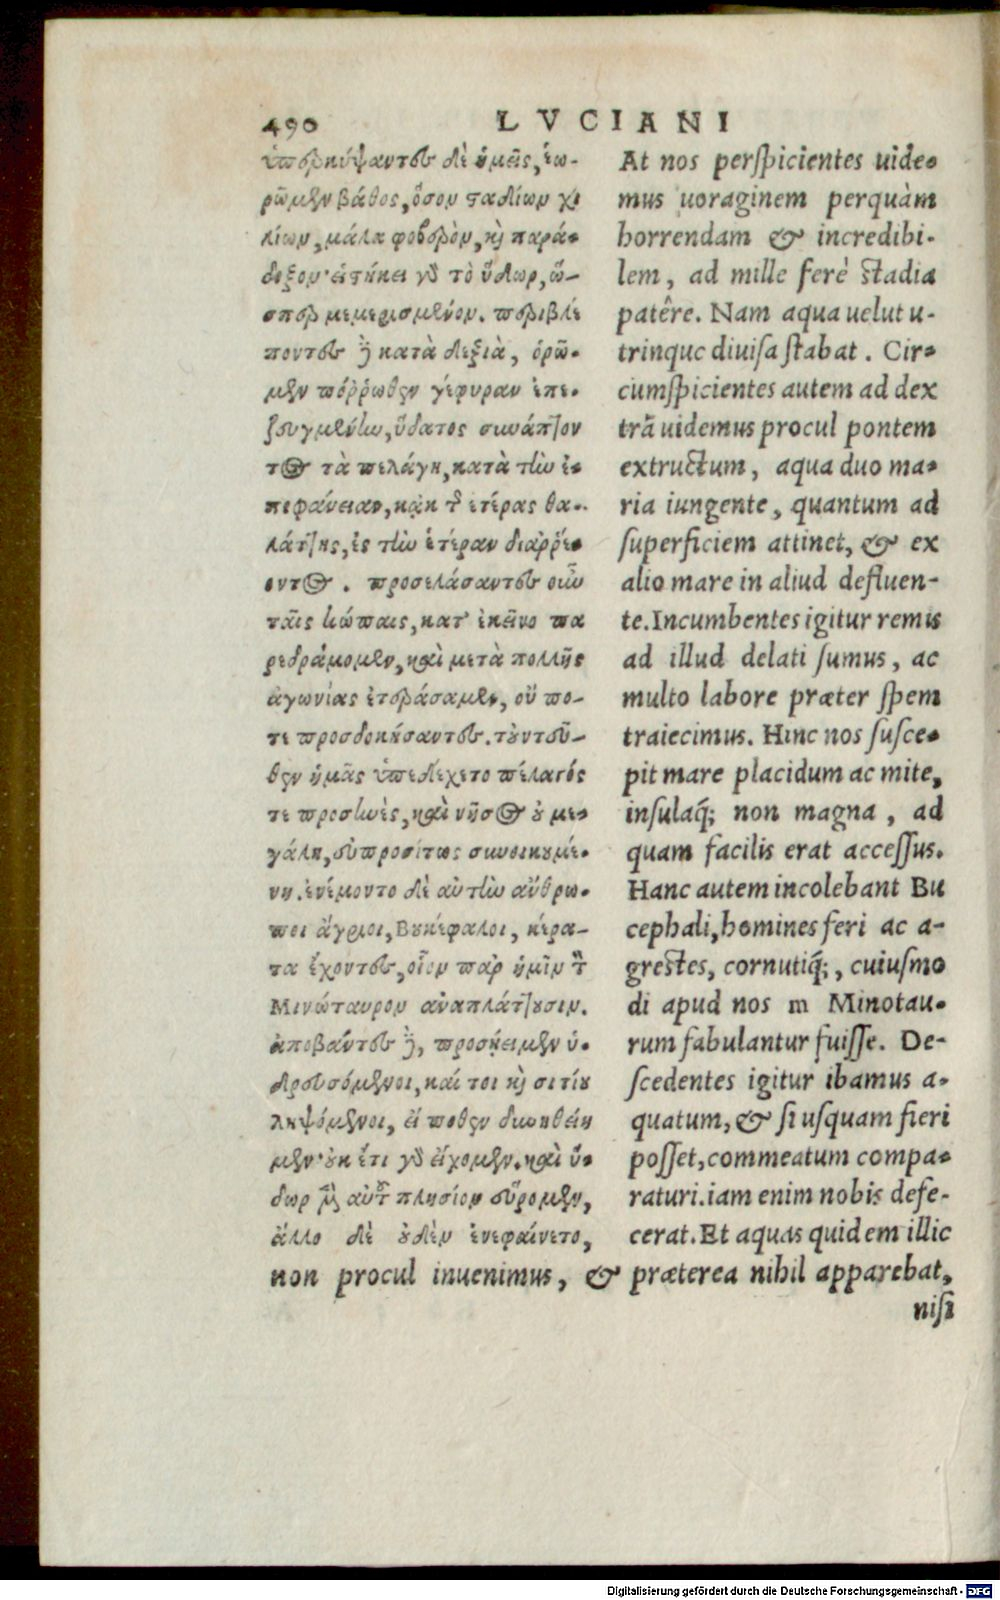 490 LVCIANI
ὑπερκύψαντες δὲ ἡμεῖς, ἑω-
ρῶμεν βάθος, ὅσον σταδίων χι
λίων, μάλα φοβερὸν, καὶ παρά-
δοξον· εἱστήκει γὰρ τὸ ὕδωρ, ὥ-
σπερ μεμερισμένον. περιβλέ
ποντες δὲ κατὰ δεξιὰ, ὁρῶ-
μεν πόῤῥωθεν γέφυραν ἐπε-
ζευγμένην, ὕδατος συνάπτον
τος τὰ πελάγη, κατὰ τὴν ἐ-
πιφάνειαν, κᾀκ τῆς ἑτέρας θα-
λάττης, ἐς τὴν ἑτέραν διαῤῥέ-
οντος. προσελάσαντες οὖν
ταῖς κώπαις, κατ' ἐκεῖνο πα
ρεδράμομεν, καὶ μετὰ πολλῆς
ἀγωνίας ἐπεράσαμεν, οὔ πο-
τε προσδοκήσαντες. τοὐντεῦ-
θεν ἡμᾶς ὑπεδέχετο πέλαγός
τε προσηνὲς, καὶ νῆσος οὐ με-
γάλη, εὐπροσίτως συνοικουμέ-
νη. ἐνέμοντο δὲ αὐτὴν ἄνθρω-
ποι ἄγριοι, Βουκέφαλοι, κέρα-
τα ἔχοντες, οἷον παρ ἡμῖν τὸν
Μινώταυρον ἀναπλάττουσιν.
ἀποβάντες δὲ, προσῄειμεν ὑ-
δρευσόμενοι, καί τοι καὶ σιτίου
ληψόμενοι, εἴ ποθεν δυνηθείη
μεν· οὐκ ἔτι γὰρ εἴχομεν. καὶ ὕ-
δωρ μὲν αὐτοῦ πλησίον εὕρομεν,
ἄλλο δὲ οὐδὲν ἐνεφαίνετο,
At nos perspicientes uide-
mus uoraginem perquàm
horrendam & incredibi-
lem, ad mille ferè stadia
patêre. Nam aqua uelut u-
trinque diuisa stabat. Cir-
cumspicientes autem ad dex
trā uidemus procul pontem
extructum, aqua duo ma-
ria iungente, quantum ad
superficiem attinet, & ex
alio mare in aliud defluen-
te. Incumbentes igitur remis
ad illud delati sumus, ac
multo labore præter spem
traiecimus. Hinc nos susce-
pit mare placidum ac mite,
insulaq́; non magna, ad
quam facilis erat accessus.
Hanc autem incolebant Bu
cephali, homines feri ac a-
grestes, cornutiq́;, cuiusmo
di apud nos m Minotau-
rum fabulantur fuisse. De-
scedentes igitur ibamus a-
quatum, & si usquam fieri
posset, commeatum compa-
raturi. iam enim nobis defe-
cerat. Et aquas quidem illic
non procul inuenimus, & præterea nihil apparebat,
nisi
Digitalisierung gefördert durch die Deutsche Forschungsgemeinschaft - DFG